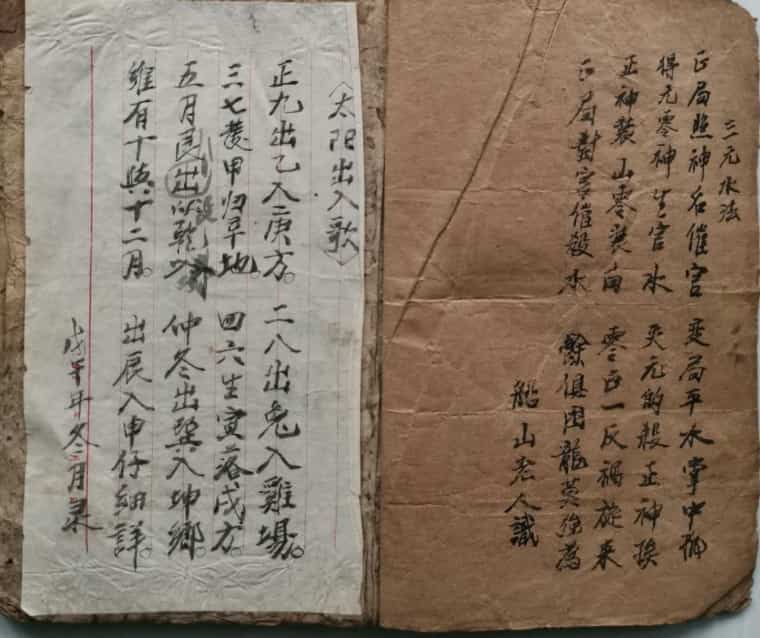 三元水法
正局照神名催官 变局平水掌中
得元零神生官水 失元的殺正神
正神裝山零裝向 零正一反禍旋来
正局對宮催殺水 俱困龍莫強為
船山老人識
〈太阳出入歌〉
正九出乙入庚方。二八出兔入雞場。
三七發甲归辛地。四六生寅落戌方。
五月艮出以乾 仲冬出巽入坤鄉。
維有十與十二月。出辰入申仔細詳。
戊 年冬二月录